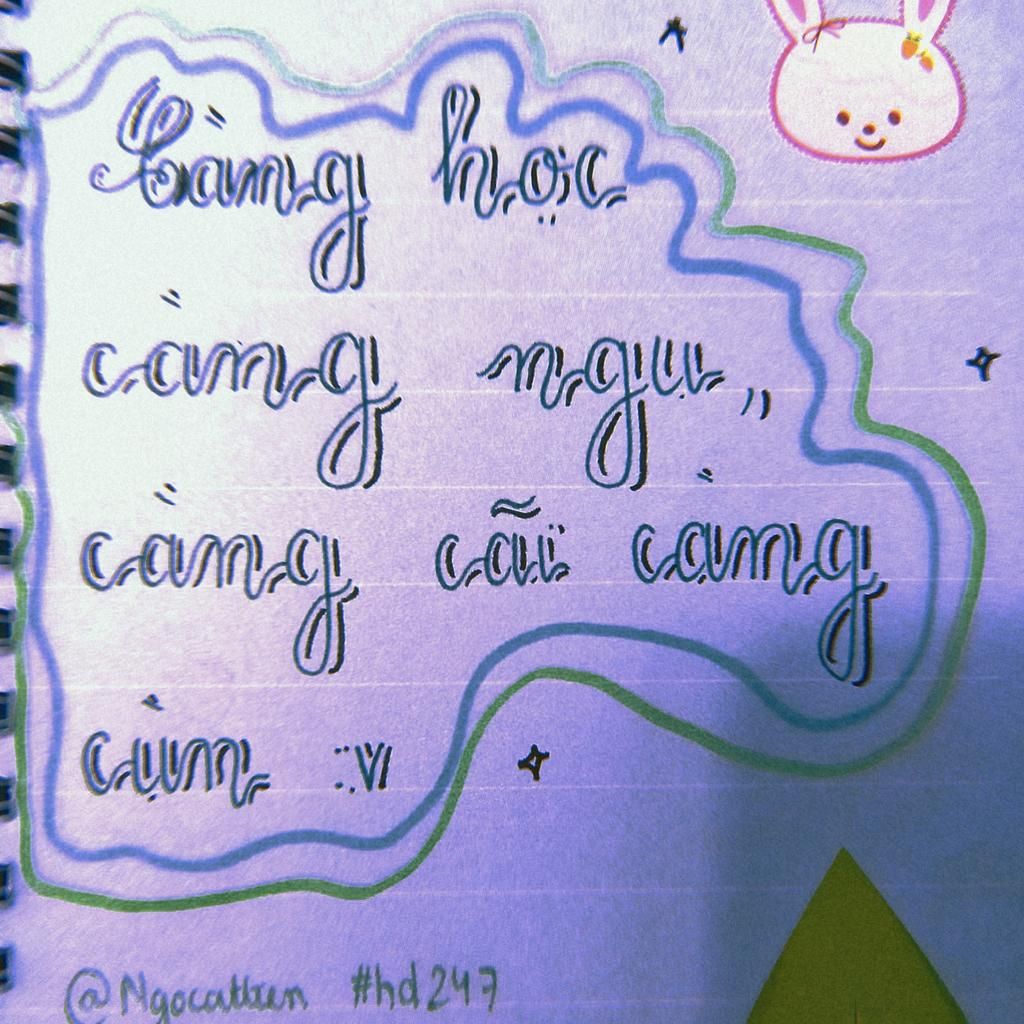 Càng học
càng ngu,,
càng cãi càng
cùn :v
@Ngocattien #hd247